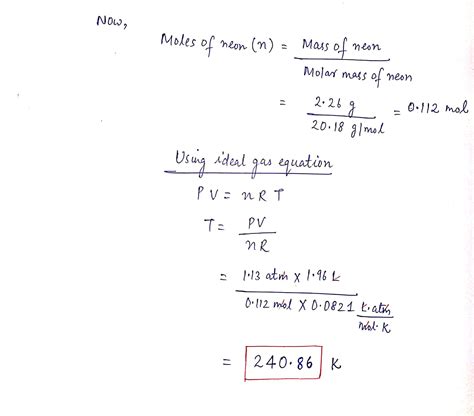 Now,
Moles of neon (n) = Mass of neon / Molar mass of neon
= 2.26 g / 20.18 g/mol = 0.112 mol
Using ideal gas equation
PV = nRT
T = PV / nR
= 1.13 atm X 1.96 L / 0.112 mol X 0.0821 L.atm / mol.K
= 240.86 K